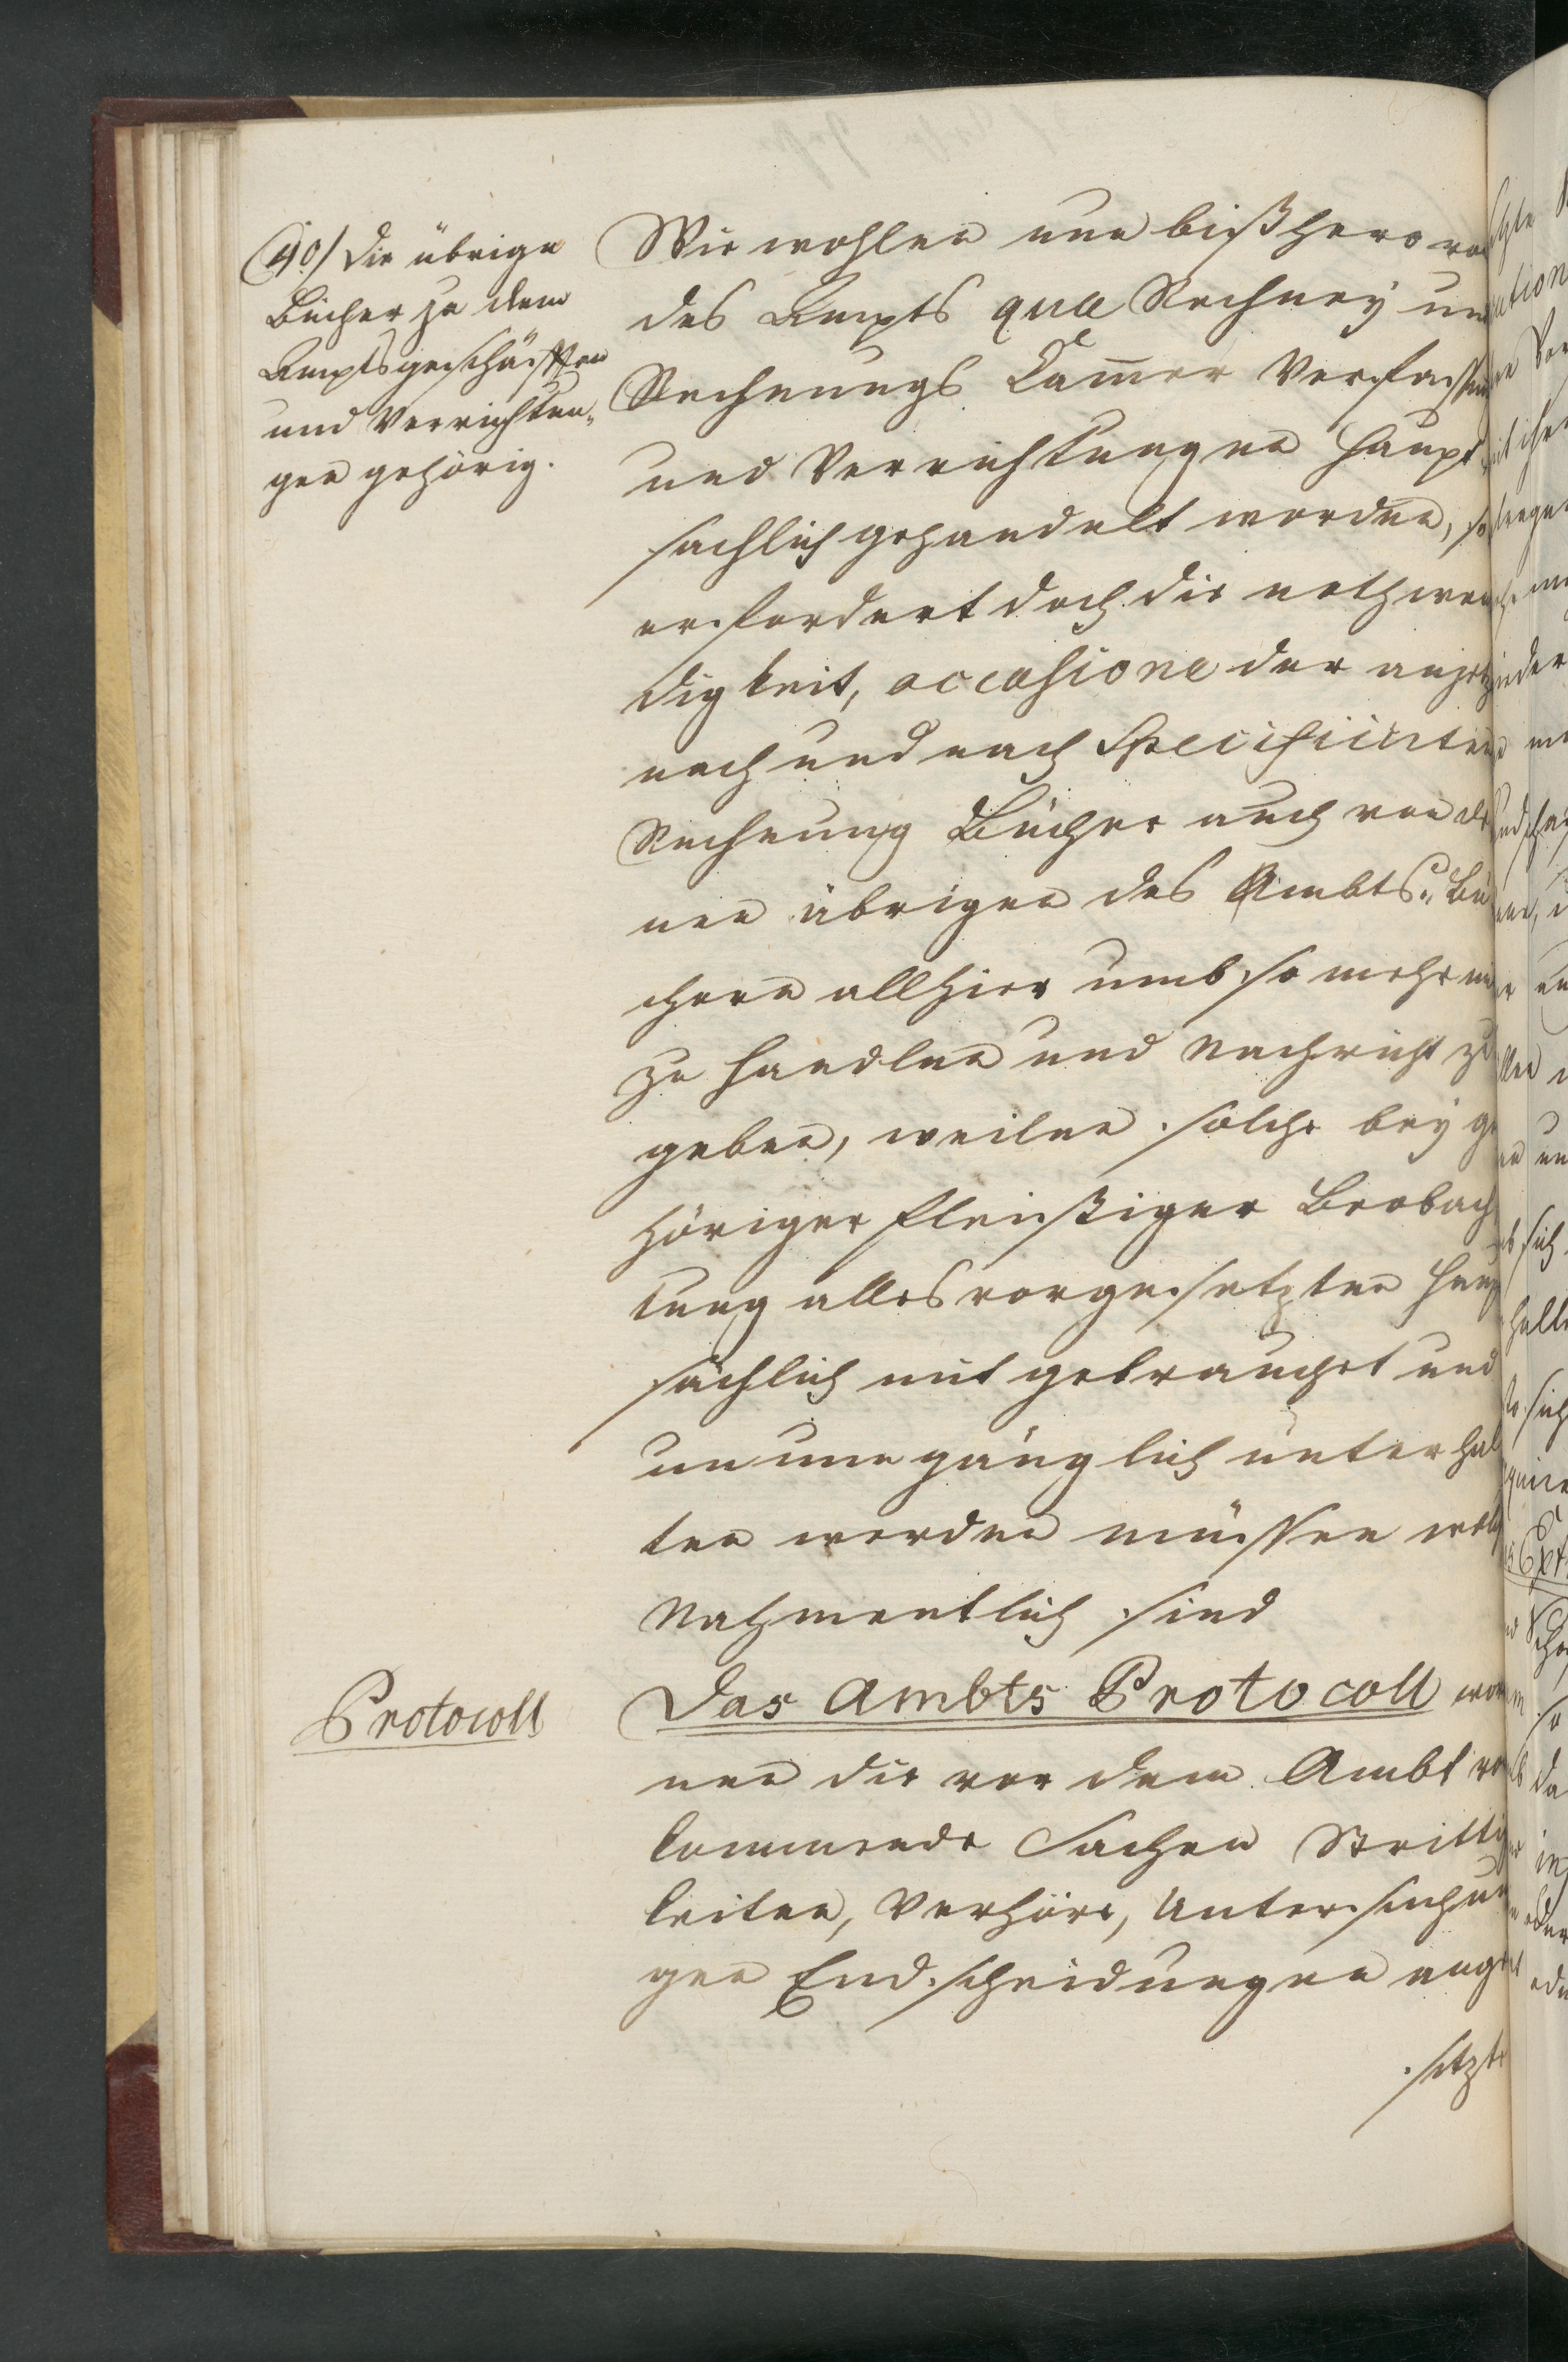 40./ Die übrige
Bücher zu dem
Amptsgeschäfften
und Verrichtun„
gen gehörig.
Wie wohlen nun bißhero vo
des Ampts qua Rechney un
Rechnungs Cam̄er Verfassun
und Verrichtungen haupt
sachlich gehandelt worden, so
erfordert doch die nothwen
digkeit, occasione der anjetz
nach und nach specificirten
Rechnung Bücher auch von de
nen übrigen des Ambts„ Bü
chern allhier umb so mehr
zu handlen und Nachricht zu
geben, weilen solche bey ge
höriger fleißiger Beobach
tung alles vorgesetzten haup
sächlich mit gebrauchet und
unumgänglich unterhal
ten werden müssen welch
Nahmentlich sind
Protocoll
Das Ambts Protocoll wor
nen die vor dem Ambt vor
kommende Sachen Strittig
keiten, Verhöre, Untersuchun
gen Endscheidungen ange
setzte